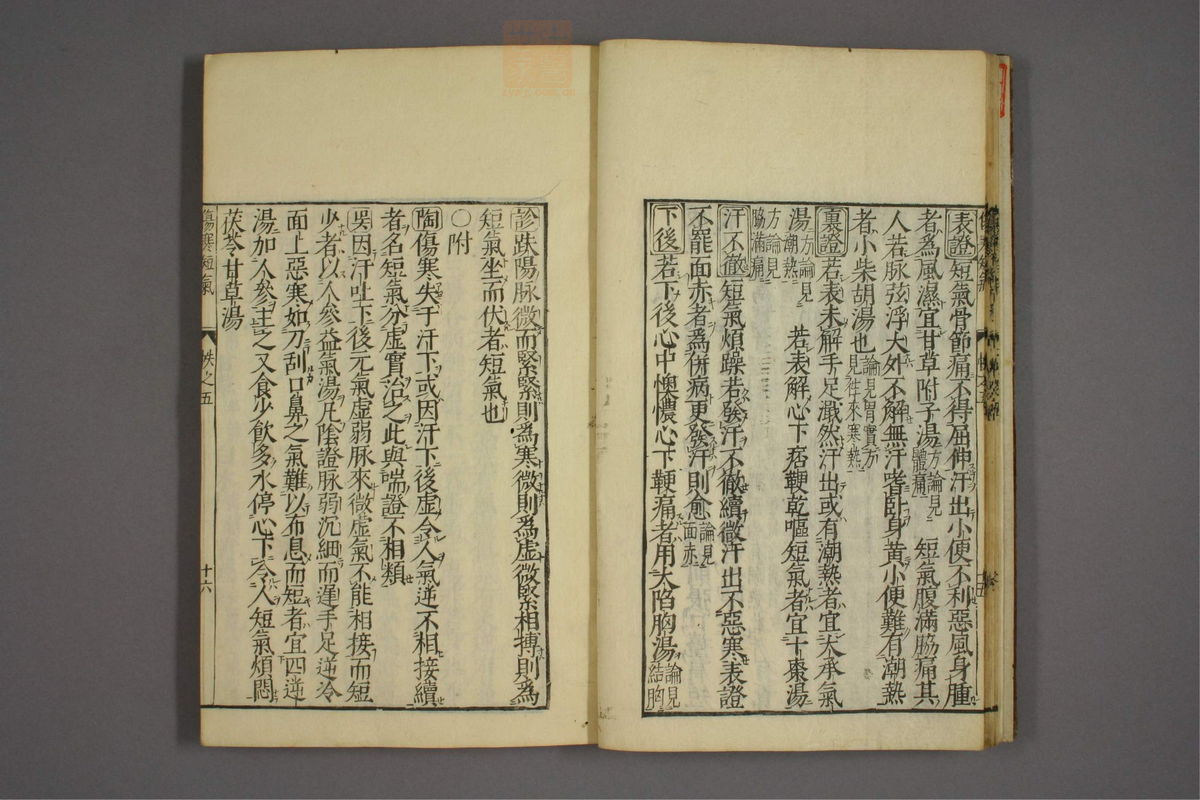 表證短氣骨節痛不得屈伸汗出小便不利惡風身腫
者為風濕宜甘草附子湯方論見體痛 短氣腹滿脇痛其
人若脉弦浮大外不解無汗嗜卧身黃小便難有潮熱
者小柴胡湯也論見胃實方見往來寒熱
裏證若表未解手足濈然汗出或有潮熱者宜大承氣
湯方論見潮熱 若表解心下痞鞕乾嘔短氣者宜十棗湯
方論見脇滿痛
汗不徹短氣煩躁若發汗不徹續微汗出不惡寒表證
不罷面赤者為併病更發汗則愈論見面赤
下後若下後心中懊憹心下鞕痛者用大陷胸湯論見結胸
診趺陽脉微而緊緊則為寒微則為虛微緊相搏則為
短氣坐而伏者短氣也
○附
陶傷寒失于汗下或因汗下後虛令人氣逆不相接續
者名短氣分虛實治之此與喘證不相類
吳因汗吐下後元氣虛弱脉來微虛氣不能相接而短
少者以人參益氣湯凡陰證脉弱沉細而遲手足逆冷
面上惡寒如刀刮口鼻之氣難以布息而短者宜四逆
湯加人參主之又食少飲多水停心下令人短氣煩悶
茯苓甘草湯
傷寒短氣 帙之五 十六